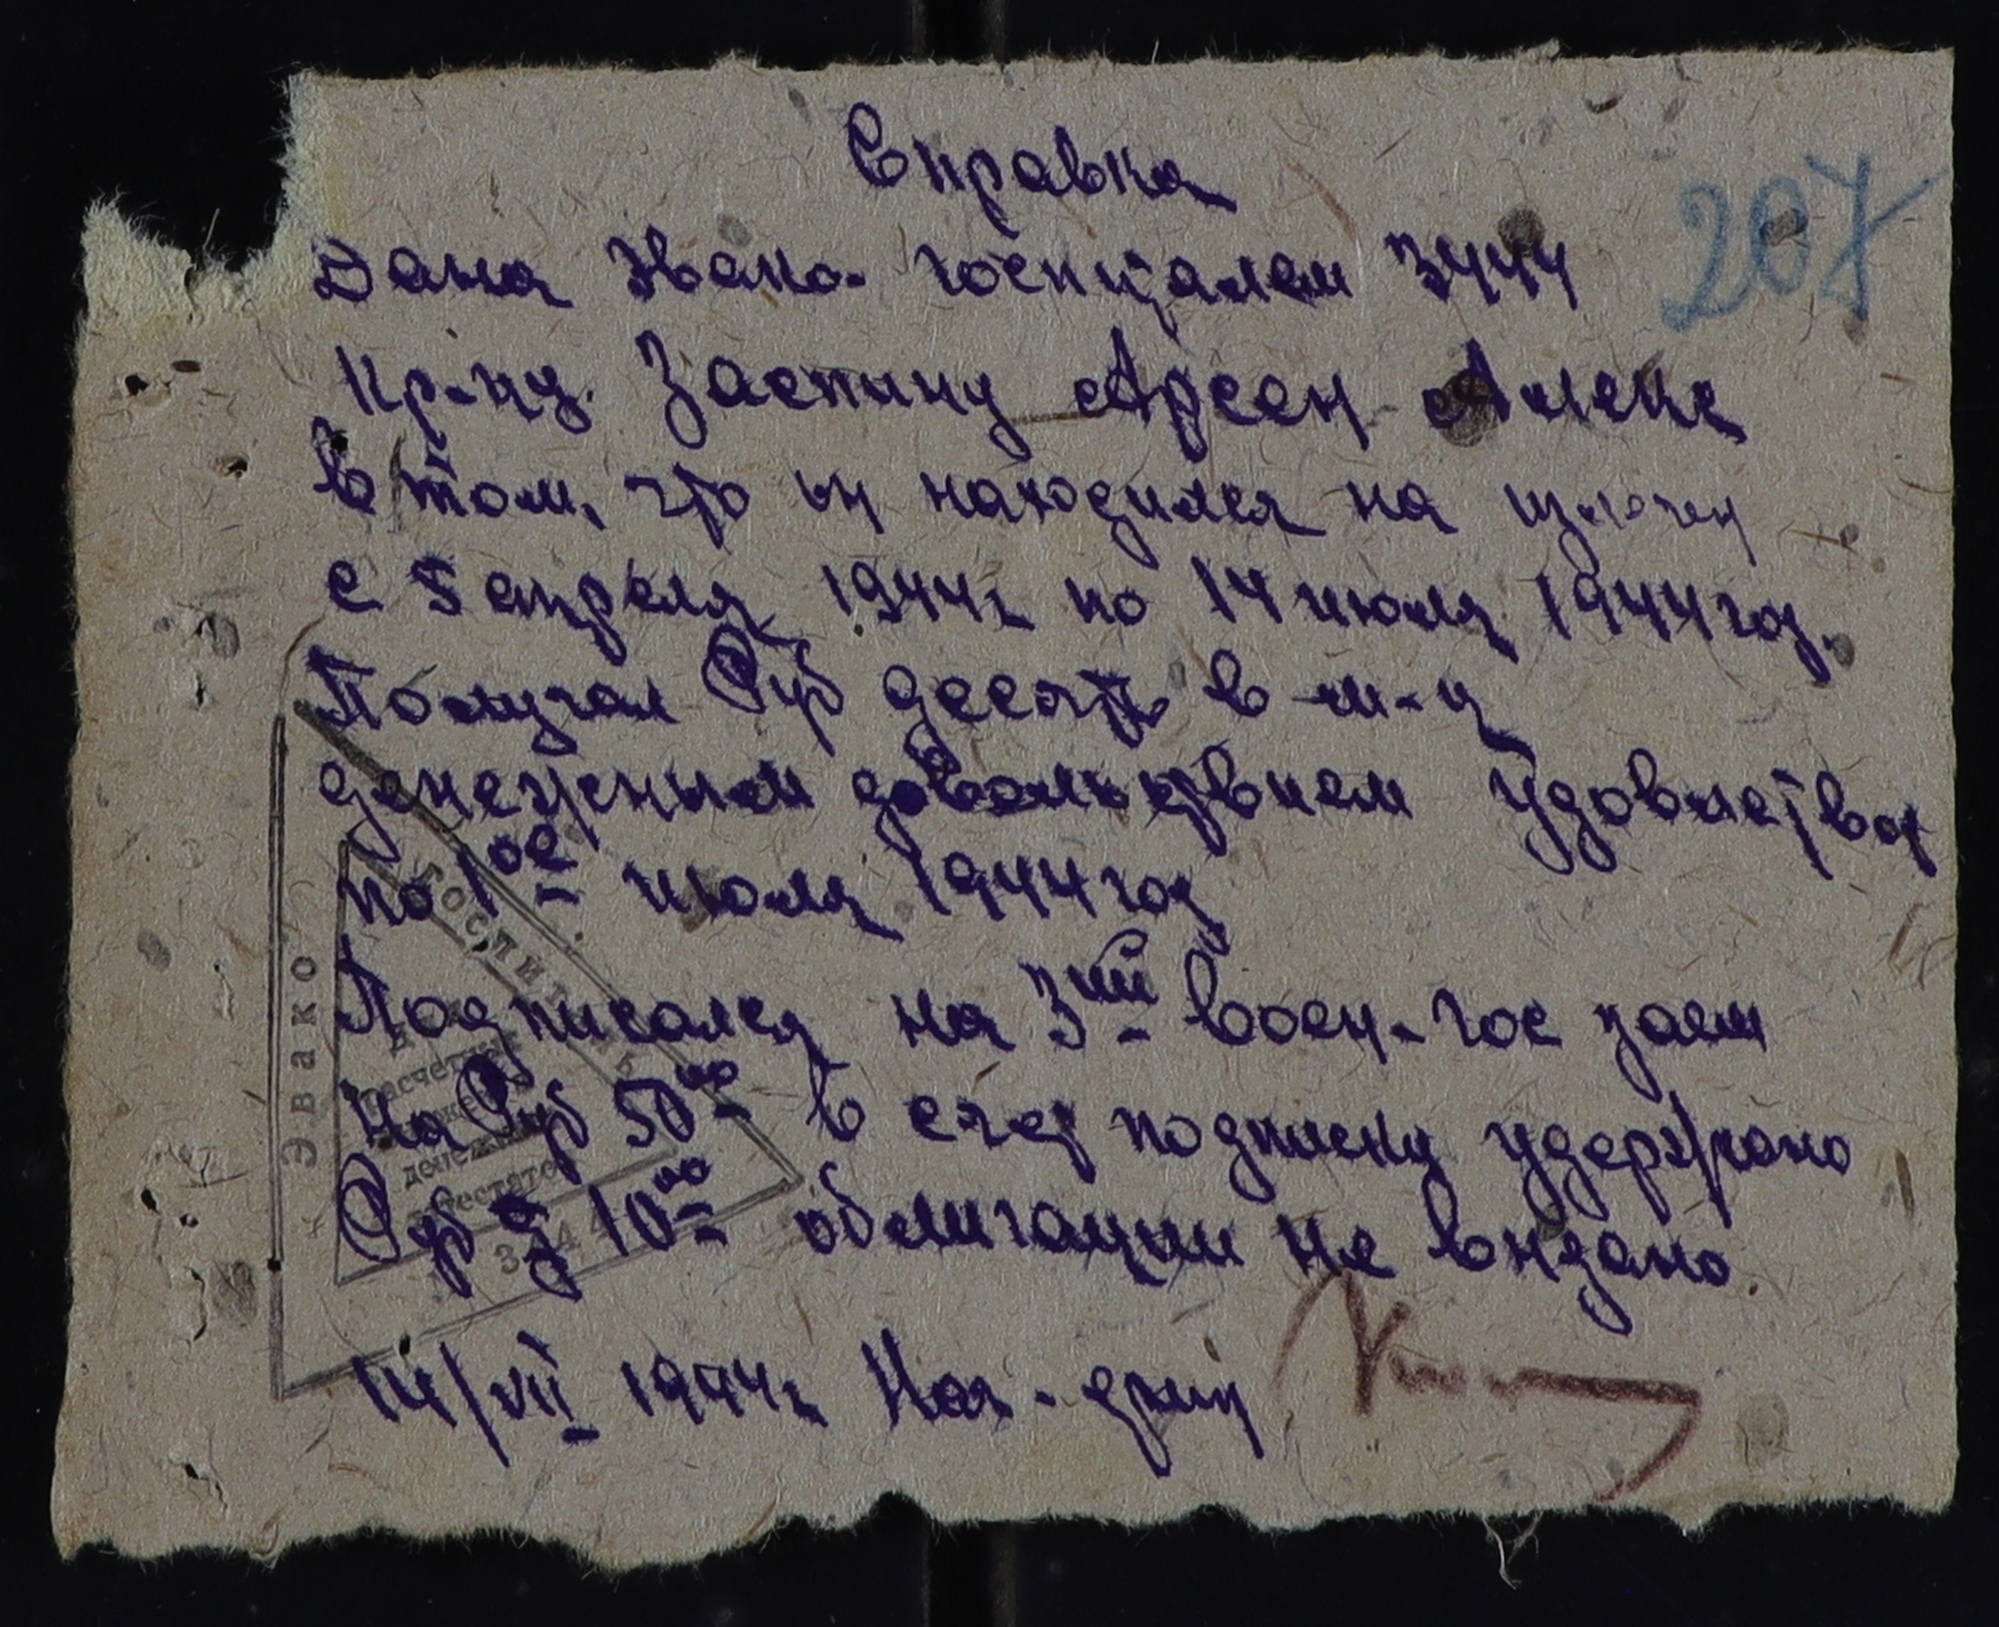 Справка
207
Дана Эвако-госпиталем 3444
Кр-цу. Застину Арсен Алекс
в том, что он находился на излечен
с 5 апреля 1944г по 14 июля 1944год.
Получал Руб десять в м-ц
денежным довольствием Удовлетвор
по 1ое июля 1944год
Подписался на 3ий воен-гос заем
на Руб 50оо в счет подписки удержано
Руб 10оо облигации не выдано.
14/VII 1944г Нач-фин
ЭВАКО
ГОСПИТАЛЬ
Для
расчетных
книжек
денежн
аттестатов
3444